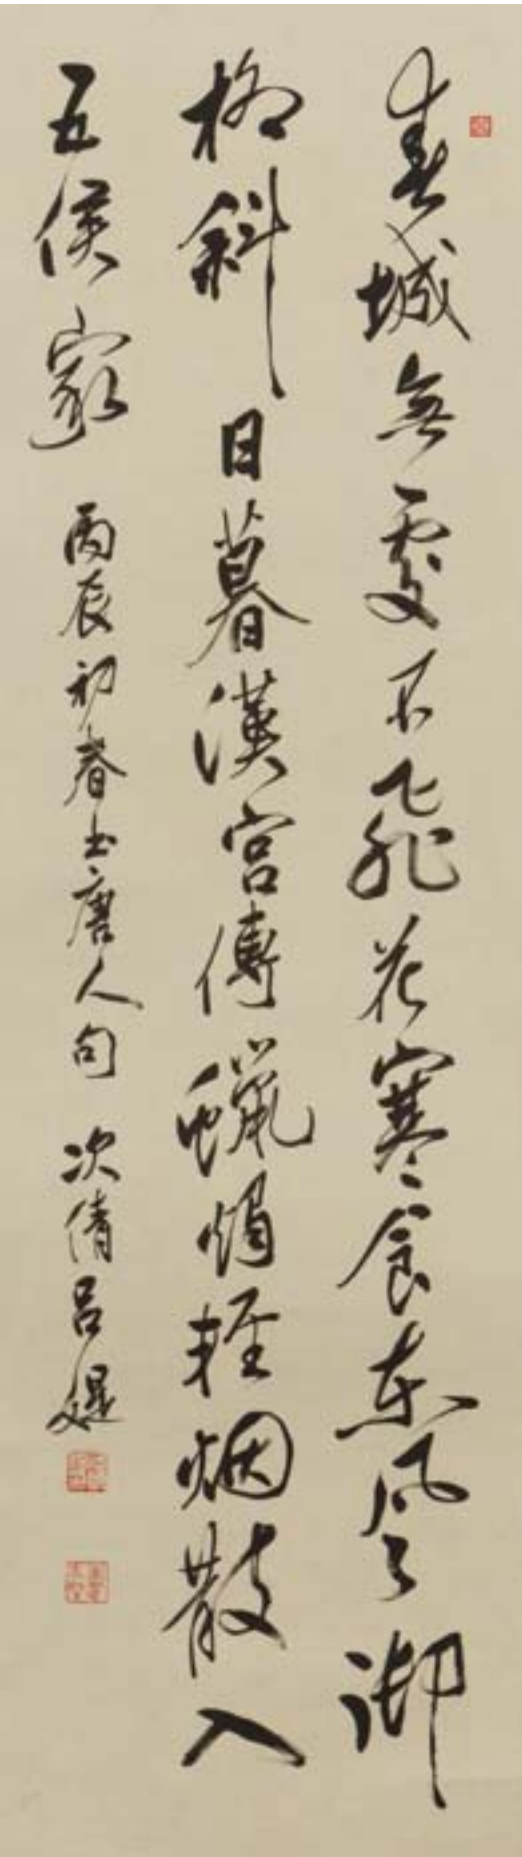 春城無處不飛花寒食東風御
柳斜日暮漢宮傳蠟燭輕烟散入
五侯家 丙辰初春書唐人句 次倩呂媞